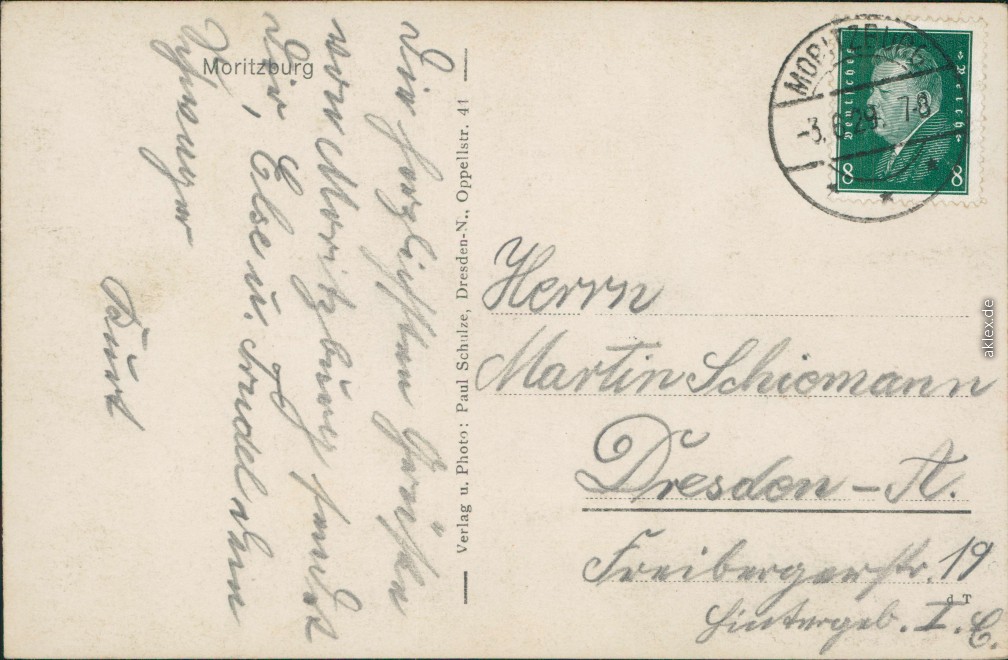 Moritzburg
Die herzlichsten Grüße
von Moritzburg sendet
Dir, Else u. Trudel Dein
Schwager
Kurt
Verlag u. Photo: Paul Schulze, Dresden-N., Oppellstr. 41
MORITZBURG
-3. 6. 29. 7-8
Deutsches Reich
8 8
Herrn
Martin Schiemann
Dresden-A.
Freibergerstr. 19
Hintergeb. I.
d T
aklex.de